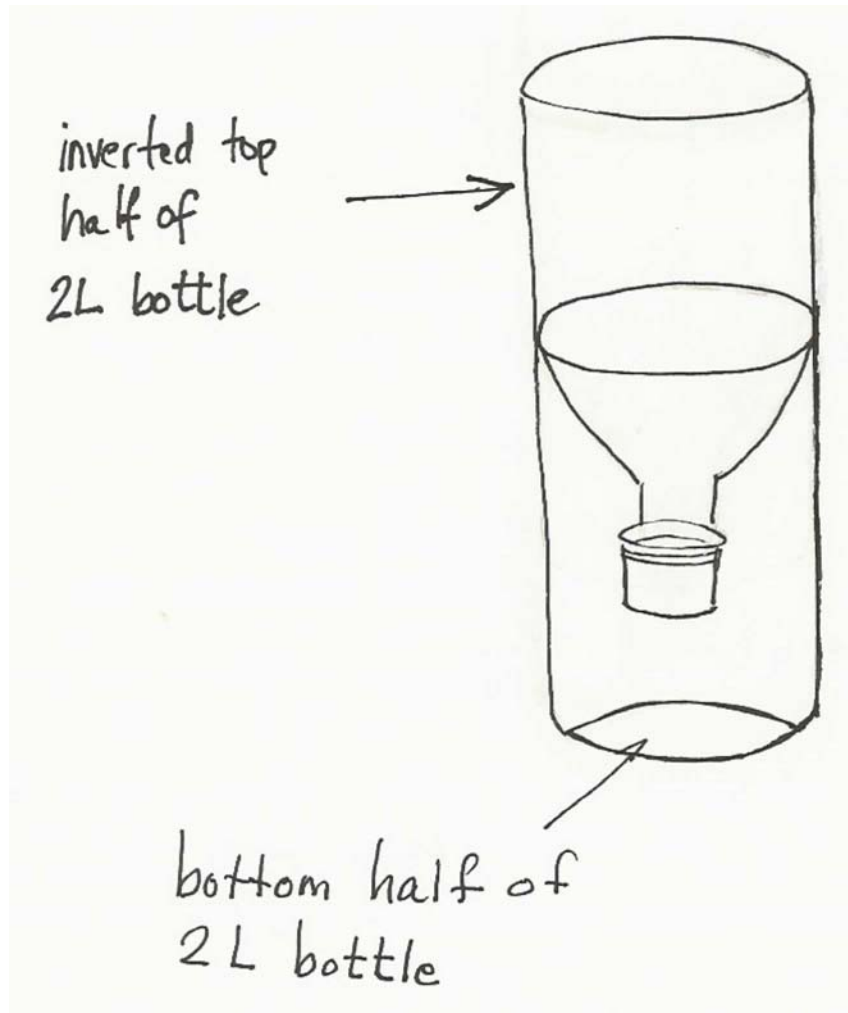 inverted top
half of
2L bottle
bottom half of
2L bottle